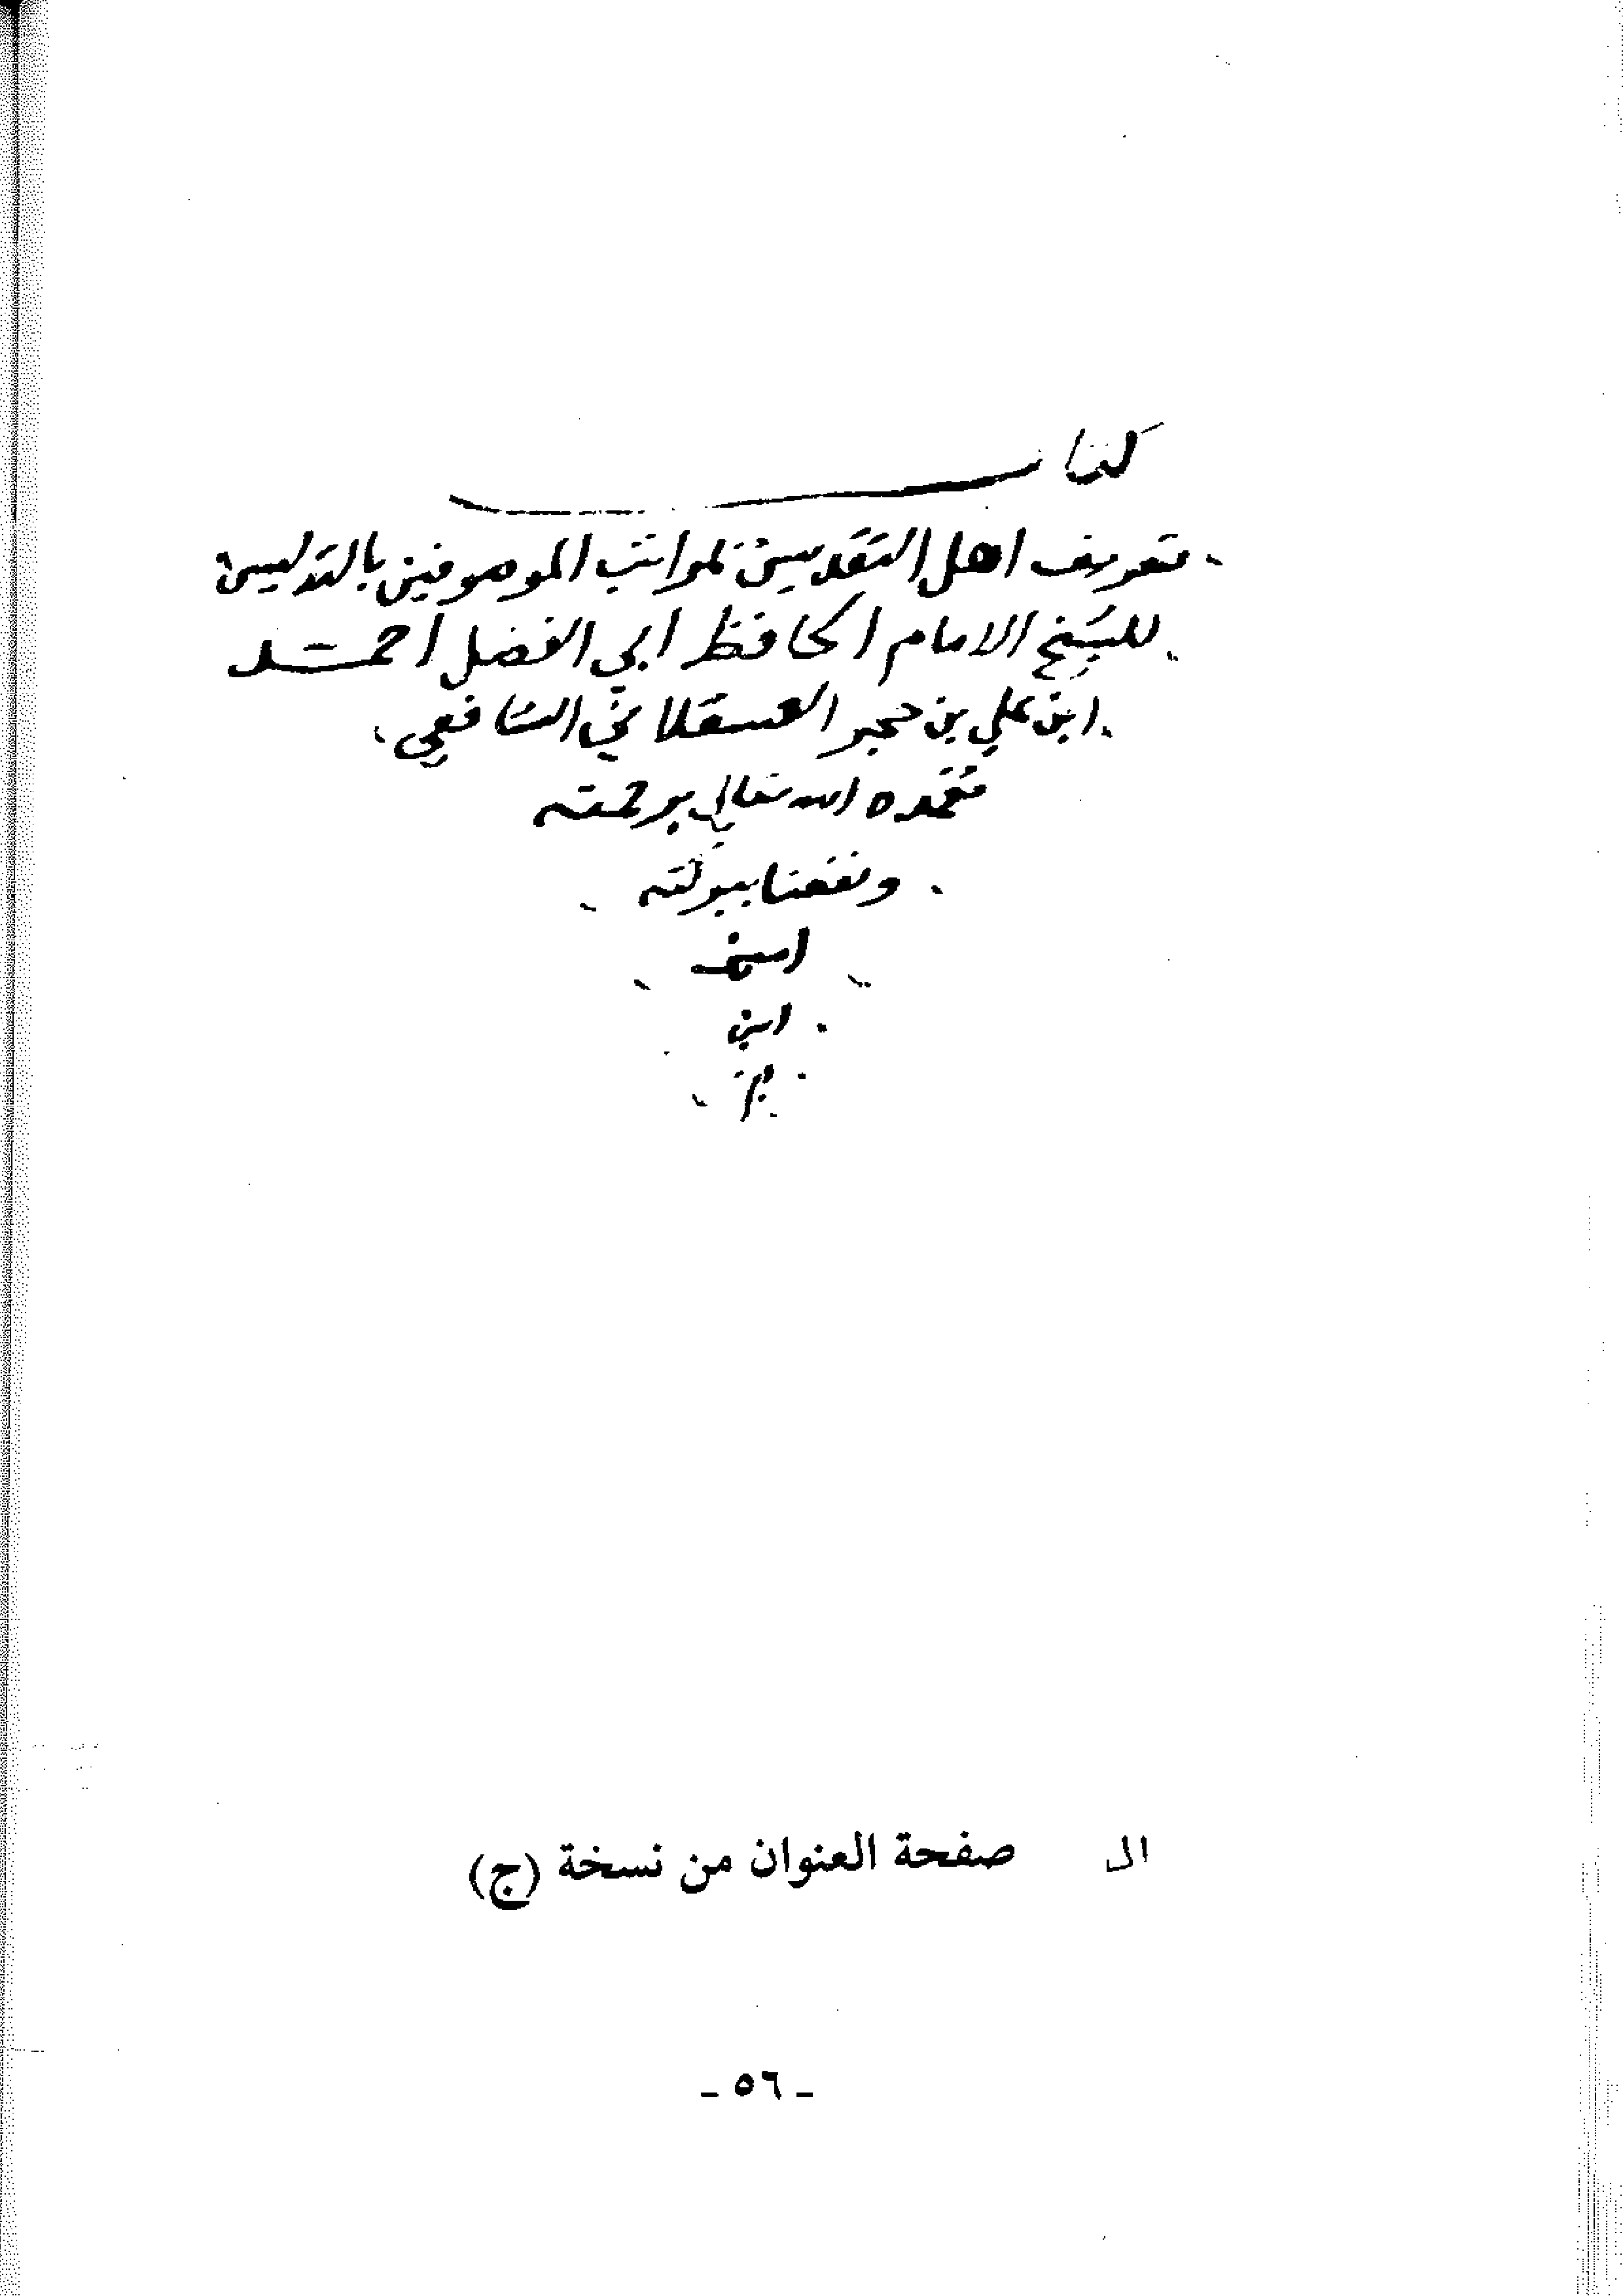 كتاب
تعريف اهل التقديس بمراتب الموصوفين بالتدليس
للشيخ الامام الحافظ ابي الفضل احمد
ابن علي بن حجر العسقلاني الشافعي
تغمده الله تعالى برحمته
ونفعنا ببركته
امين
امين
ال صفحة العنوان من نسخة (ج)
- ٥٦ -